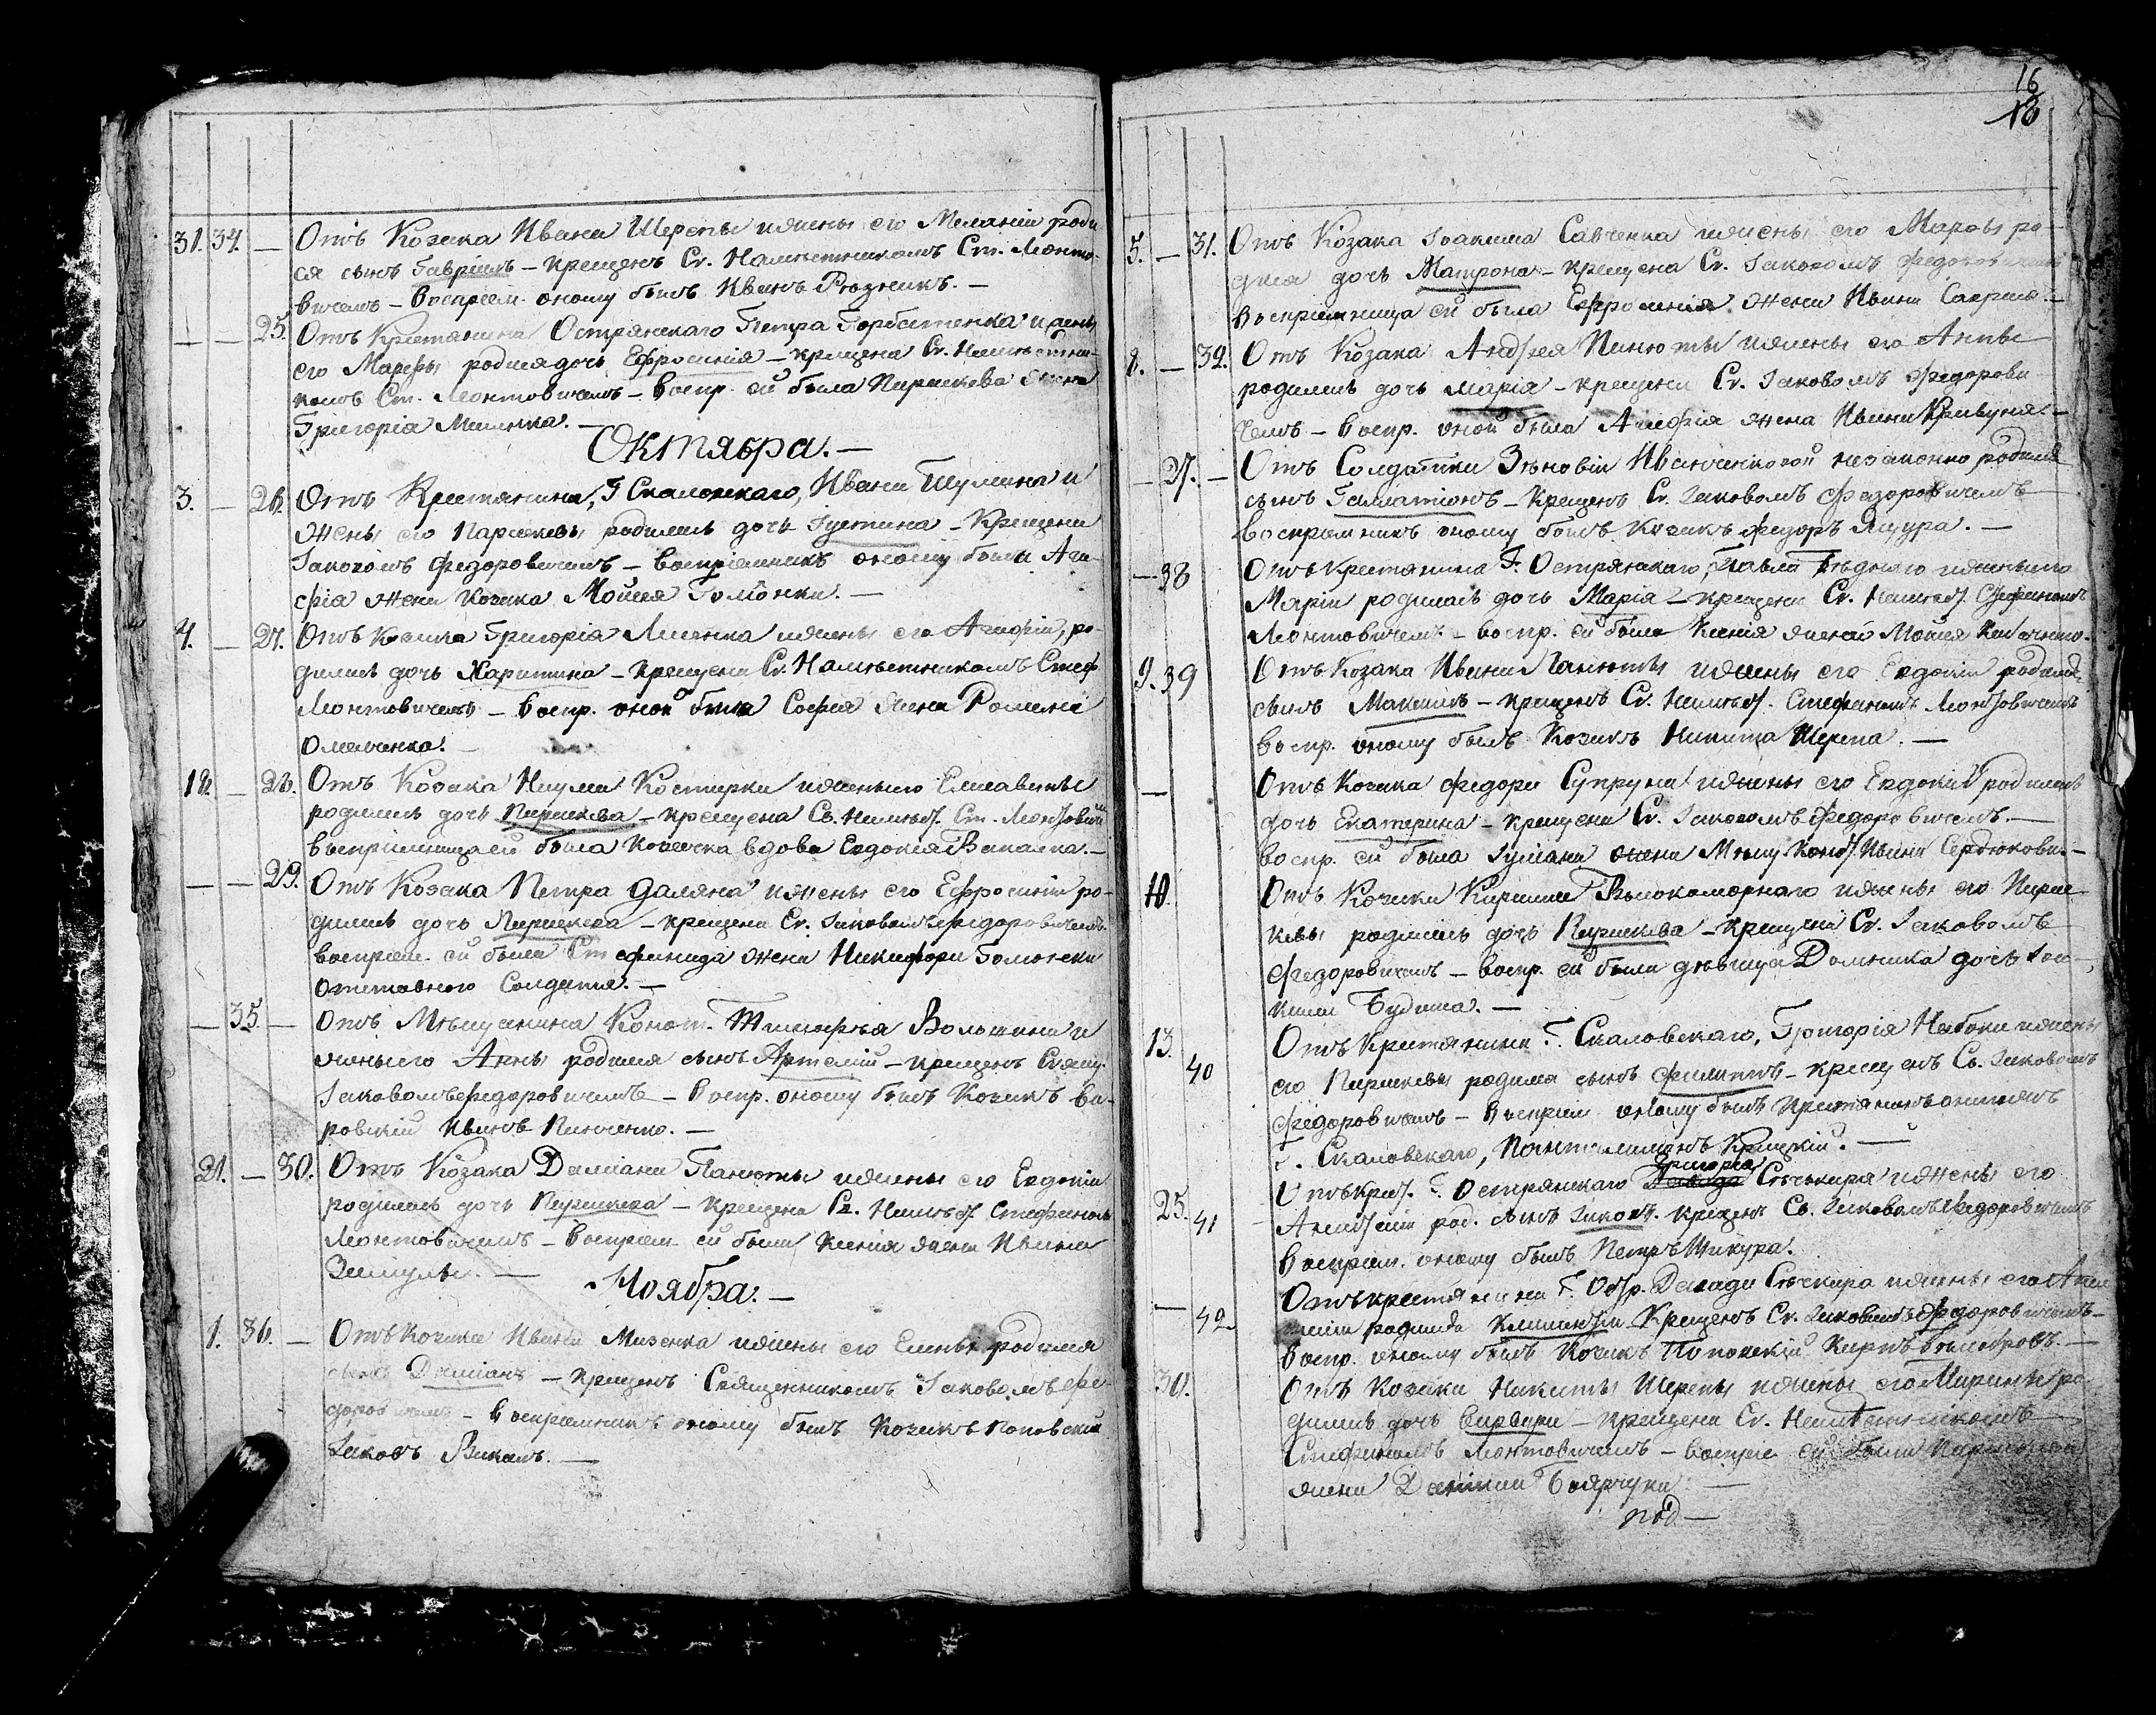 31. 34. — Отъ Козака Ивана Шерепы ижены его Меланіи роди
ся сынъ Гавріилъ – крещенъ Св. Намѣстникомъ Ст. Леонто-
вичемъ – воспріем. оному былъ Иванъ Рѣзникъ. —
— — 25. Отъ Крестянина Острянскаго Петра Горбатенка и жены
его Марфы родися дочь Ефросинія – крещена Св. Намѣстни-
комъ Ст. Леонтовичемъ – воспр. ей была Параскева жена
Григорія Миленка. —
Октября. —
3. — 26. Отъ Крестянина, Г Скаловскаго, Ивана Шулика и
жены его Параскевы родилась дочь Іустина – Крещена
Іаковомъ Федоровичемъ – воспріемникъ оному была Ага-
фія жена козака Мойсея Голюнки. —
4. — 27. Отъ Козака Григорія Лисенка ижены его Агафіи, ро-
дилась дочь Харитина – крещена Св. Намѣстникомъ Стеф.
Леонтовичемъ – воспр. оной была Софія жена Романа
Омельченка. —
12. — 28. Отъ Козака Наума Костирки иженыего Елисаветы
родилась дочь Параскева – крещена Св. Намѣст. Ст. Леонтович
воспріемницаей была Козачка вдова Евдокія Вакалка. —
— — 29. Отъ Козака Петра Даляна ижены его Ефросиніи ро-
дилась дочь Параскева – крещена Св. Іаковомъ Федоровичемъ.
воспріем. ей была Стефанида жена Никифора Голюнки
отставного Солдата. —
— 35. — Отъ Мѣщанина Коноп. Тимофѣя Волошина и
женыего Анны родися сынъ Артемій – крещенъ Свящ.
Іаковомъ Федоровичемъ – воспр. оному былъ Козакъ ва-
ровскій Иванъ Пинченко. —
21. — 30. Отъ Козака Даміана Панюты ижены его Евдокіи
родилась дочь Параскева – крещена Св. Намѣст. Стефаномъ
Леонтовичемъ – воспріем. ей была Ксенія жена Ивана
Зашулы. —
Ноября. —
1. 36. — Отъ Козака Ивана Мизенка ижены его Елены родися
сынъ Даміанъ – крещенъ Священникомъ Іаковомъ Фе-
доровичемъ – воспріемникъ оному былъ Козакъ поповскій
Іаковъ Вакалъ. —
16
18
5. — 31. Отъ Козака Іоакима Савченка ижены его Марфы ро-
дися дочь Матрона – крещена Св. Іаковомъ Федоровичемъ
воспріемница ей была Ефросинія жена Ивана Саприки. —
8. — 32. Отъ Козака Андрея Пинюты ижены его Анны
родилась дочь Марія – крещена Св. Іаковомъ Федорови-
чемъ – воспр. оной была Агафія жена Ивана Кривуна. —
— 37. — Отъ Солдатки Зѣновіи Иванченковой незаконно родися
сынъ Галактіонъ – Крещенъ Св. Іаковомъ Федоровичемъ
воспріемникъ оному былъ Козакъ Федоръ Ящура. —
— 38 Отъ Крестянина Г. Острянскаго, Павла Бѣднаго иженыего
Маріи родилась дочь Марія – крещена Св. Намѣст. Стефаномъ
Леонтовичемъ – воспр. ей была Ксенія женой Мойсея
9. 39 Отъ Козака Ивана Панюты ижены его Евдокіи родися
сынъ Максимъ – крещенъ Св. Намѣст. Стефаномъ Леонтовичемъ
воспр. оному былъ Козакъ Никита Шерепа. —
— Отъ Козака Федора Супруна ижены его Евдокіи родилась
дочь Екатерина – крещена Св. Іаковомъ Федоровичемъ. —
воспр. ей была Іуліана жена Мѣщ. Коноп. Ивана Сердюкова. —
10. Отъ Козака Кирила Бѣлокоморнаго ижены его Парас-
кевы родилась дочь Параскева – крещена Св. Іаковомъ
Федоровичемъ – воспр. ей была дѣвица Домника дочь Іоа-
кима Будника. —
13. 40 Отъ Крестянина Г. Скаловскаго, Григорія Набоки ижены
его Параскевы родися сынъ Филиппъ – крещенъ Св. Іаковомъ
Федоровичемъ – воспріем. оному былъ Крестянинъ
Г. Скаловскаго, Пантелимонъ Крицкій. —
25. 41 Отъ Крест. Г. Острянскаго Григорія Сѣчкаря ижены его
род. сынъ Іаковъ. крещенъ Св. Іаковомъ Федоровичемъ
воспріем. оному былъ Петръ Шикура.
— 42 Отъ крестянина Г. Остр. Сѣчкаря ижены его
родися Климентій Крещенъ Св. Іаковомъ Федоровичемъ –
воспр. оному былъ Козакъ Поповскій Карпъ
30. Отъ Козака Никиты Шерепы ижены его Марины ро-
дилась дочь Варвара – крещена Св. Намѣстникомъ
Стефаномъ Леонтовичемъ – воспріе. ей была
жена Даніила Боярчука. —
под —